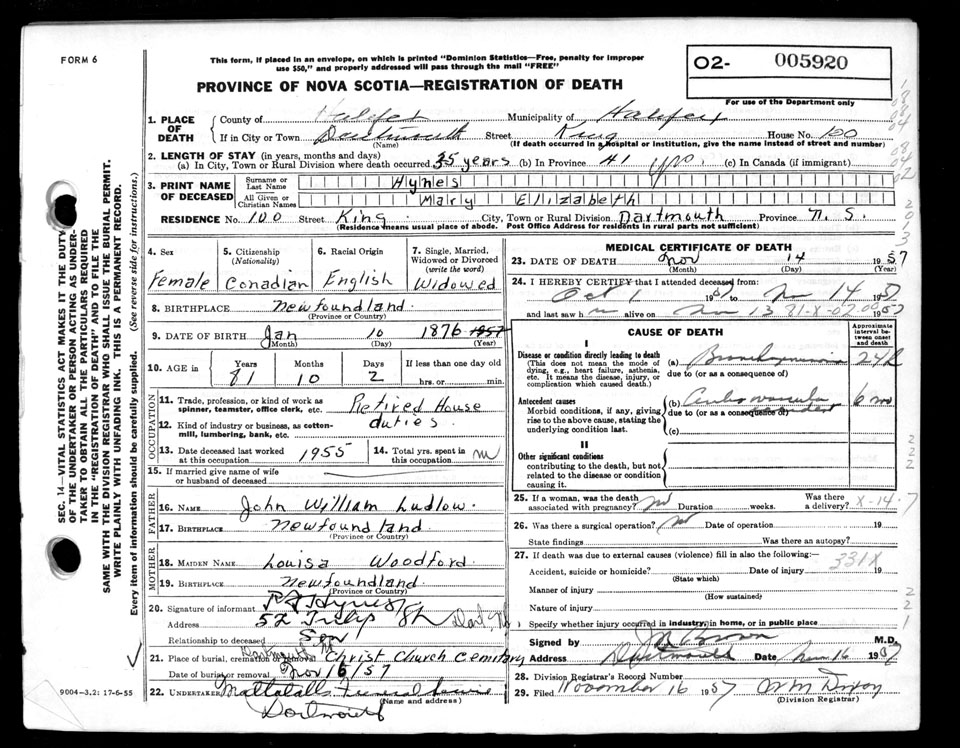 FORM 6
This form, if placed in an envelope, on which is printed "Dominion Statistics—Free, penalty for improper
use $50," and properly addressed will pass through the mail "FREE"
O2- 005920
PROVINCE OF NOVA SCOTIA—REGISTRATION OF DEATH
For use of the Department only
1. PLACE OF DEATH
County of Halifax Municipality of Halifax
If in City or Town Dartmouth Street King House No. 100
(Name) (If death occurred in a hospital or institution, give the name instead of street and number)
2. LENGTH OF STAY (in years, months and days)
(a) In City, Town or Rural Division where death occurred 35 years (b) In Province 41 yrs. (c) In Canada (if immigrant)
3. PRINT NAME OF DECEASED
Surname or Last Name Hynes
All Given or Christian Names Mary Elizabeth
RESIDENCE No. 100 Street King City, Town or Rural Division Dartmouth Province N. S.
(Residence means usual place of abode. Post Office Address for residents in rural parts not sufficient)
4. Sex
Female
5. Citizenship
(Nationality)
Canadian
6. Racial Origin
English
7. Single, Married, Widowed or Divorced
(write the word)
Widowed
8. BIRTHPLACE Newfoundland
(Province or Country)
9. DATE OF BIRTH Jan 10 1876 1957
(Month) (Day) (Year)
10. AGE in
Years 81
Months 10
Days 2
If less than one day old
hrs. or min.
OCCUPATION
11. Trade, profession, or kind of work as
spinner, teamster, office clerk, etc. Retired House
12. Kind of industry or business, as cotton-
mill, lumbering, bank, etc. duties
13. Date deceased last worked
at this occupation 1955
14. Total yrs. spent in
this occupation
15. If married give name of wife
or husband of deceased
FATHER
16. NAME John William Ludlow.
17. BIRTHPLACE Newfoundland
(Province or Country)
MOTHER
18. MAIDEN NAME Louisa Woodford
19. BIRTHPLACE Newfoundland
(Province or Country)
20. Signature of informant Hynes
Address 52 Tulip St Dart. NS
Relationship to deceased Son
Dartmouth
21. Place of burial, cremation or removal Christ Church Cemitary
Date of burial or removal Nov 16/57
22. UNDERTAKER Mattatalls Funeral
(Name and address)
Dartmouth
MEDICAL CERTIFICATE OF DEATH
23. DATE OF DEATH Nov 14 1957
(Month) (Day) (Year)
24. I HEREBY CERTIFY that I attended deceased from:
Oct 1 1957 to Nov 14 1957
and last saw h alive on Nov 13 1957
81-X-02-00
CAUSE OF DEATH
Approximate interval between onset and death
I
Disease or condition directly leading to death
(This does not mean the mode of
dying, e.g., heart failure, asthenia,
etc. It means the disease, injury, or
complication which caused death.)
(a) Bronchopneumonia 24h
due to (or as a consequence of)
Antecedent causes
Morbid conditions, if any, giving
rise to the above cause, stating the
underlying condition last.
(b) 6 mo
due to (or as a consequence of)
(c)
II
Other significant conditions
contributing to the death, but not
related to the disease or condition
causing it.
25. If a woman, was the death
associated with pregnancy? No Duration weks. Was there
a delivery? X-14-7
26. Was there a surgical operation? No Date of operation 19
State findings Was there an autopsy?
27. If death was due to external causes (violence) fill in also the following:
331X
Accident, suicide or homicide? Date of injury 19
(State which)
Manner of injury
(How sustained)
Nature of injury
Specify whether injury occurred in industry, in home, or in public place
Signed by Brown M.D.
Address Dartmouth Date Nov 16 1957
28. Division Registrar's Record Number
29. Filed November 16 1957 Dixon
(Division Registrar)
SEC. 14—VITAL STATISTICS ACT MAKES IT THE DUTY
OF THE UNDERTAKER OR PERSON ACTING AS UNDER-
TAKER TO OBTAIN ALL THE PARTICULARS REQUIRED
IN THE "REGISTRATION OF DEATH" AND TO FILE THE
SAME WITH THE DIVISION REGISTRAR WHO SHALL ISSUE THE BURIAL PERMIT.
WRITE PLAINLY WITH UNFADING INK. THIS IS A PERMANENT RECORD.
Every item of information should be carefully supplied. (See reverse side for instructions.)
9004-3,2: 17-6-55